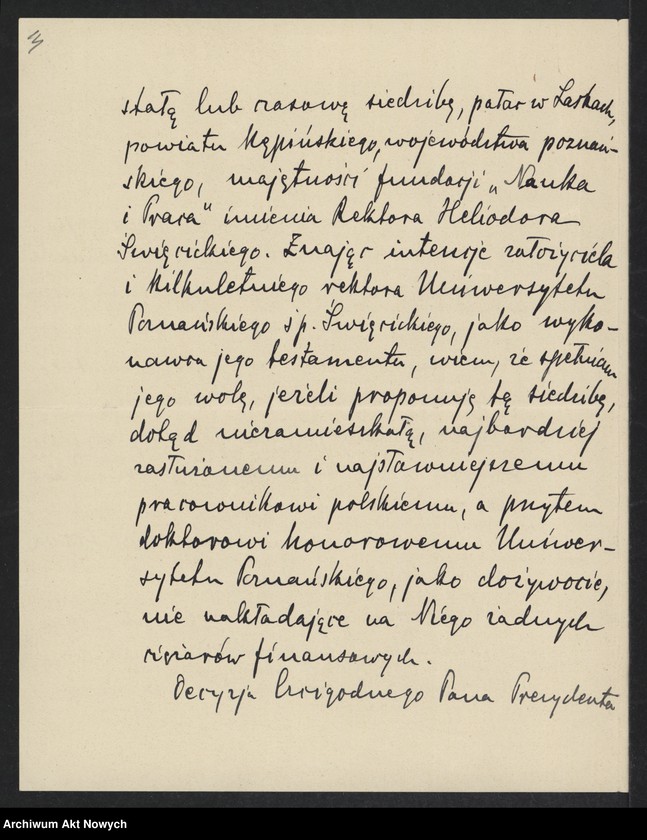 3
stałą lub czasową siedzibę, pałac w Laskach,
powiatu Kępińskiego, województwa poznań-
skiego, majętności fundacji „Nauka
i Praca" imienia Rektora Heliodora
Święcickiego. Znając intencje założyciela
i kilkuletniego rektora Uniwersytetu
Poznańskiego śp. Święcickiego, jako wyko-
nawca jego testamentu, wiem, że spełniam
jego wolę, jeżeli proponuję tę siedzibę,
dotąd niezamieszkałą, najbardziej
zasłużonemu i najsławniejszemu
pracownikowi polskiemu, a przytem
doktorowi honorowemu Uniwer-
sytetu Poznańskiego, jako dożywocie,
nie nakładające na Niego żadnych
ciężarów finansowych.
Decyzja Czcigodnego Pana Prezydenta
Archiwum Akt Nowych